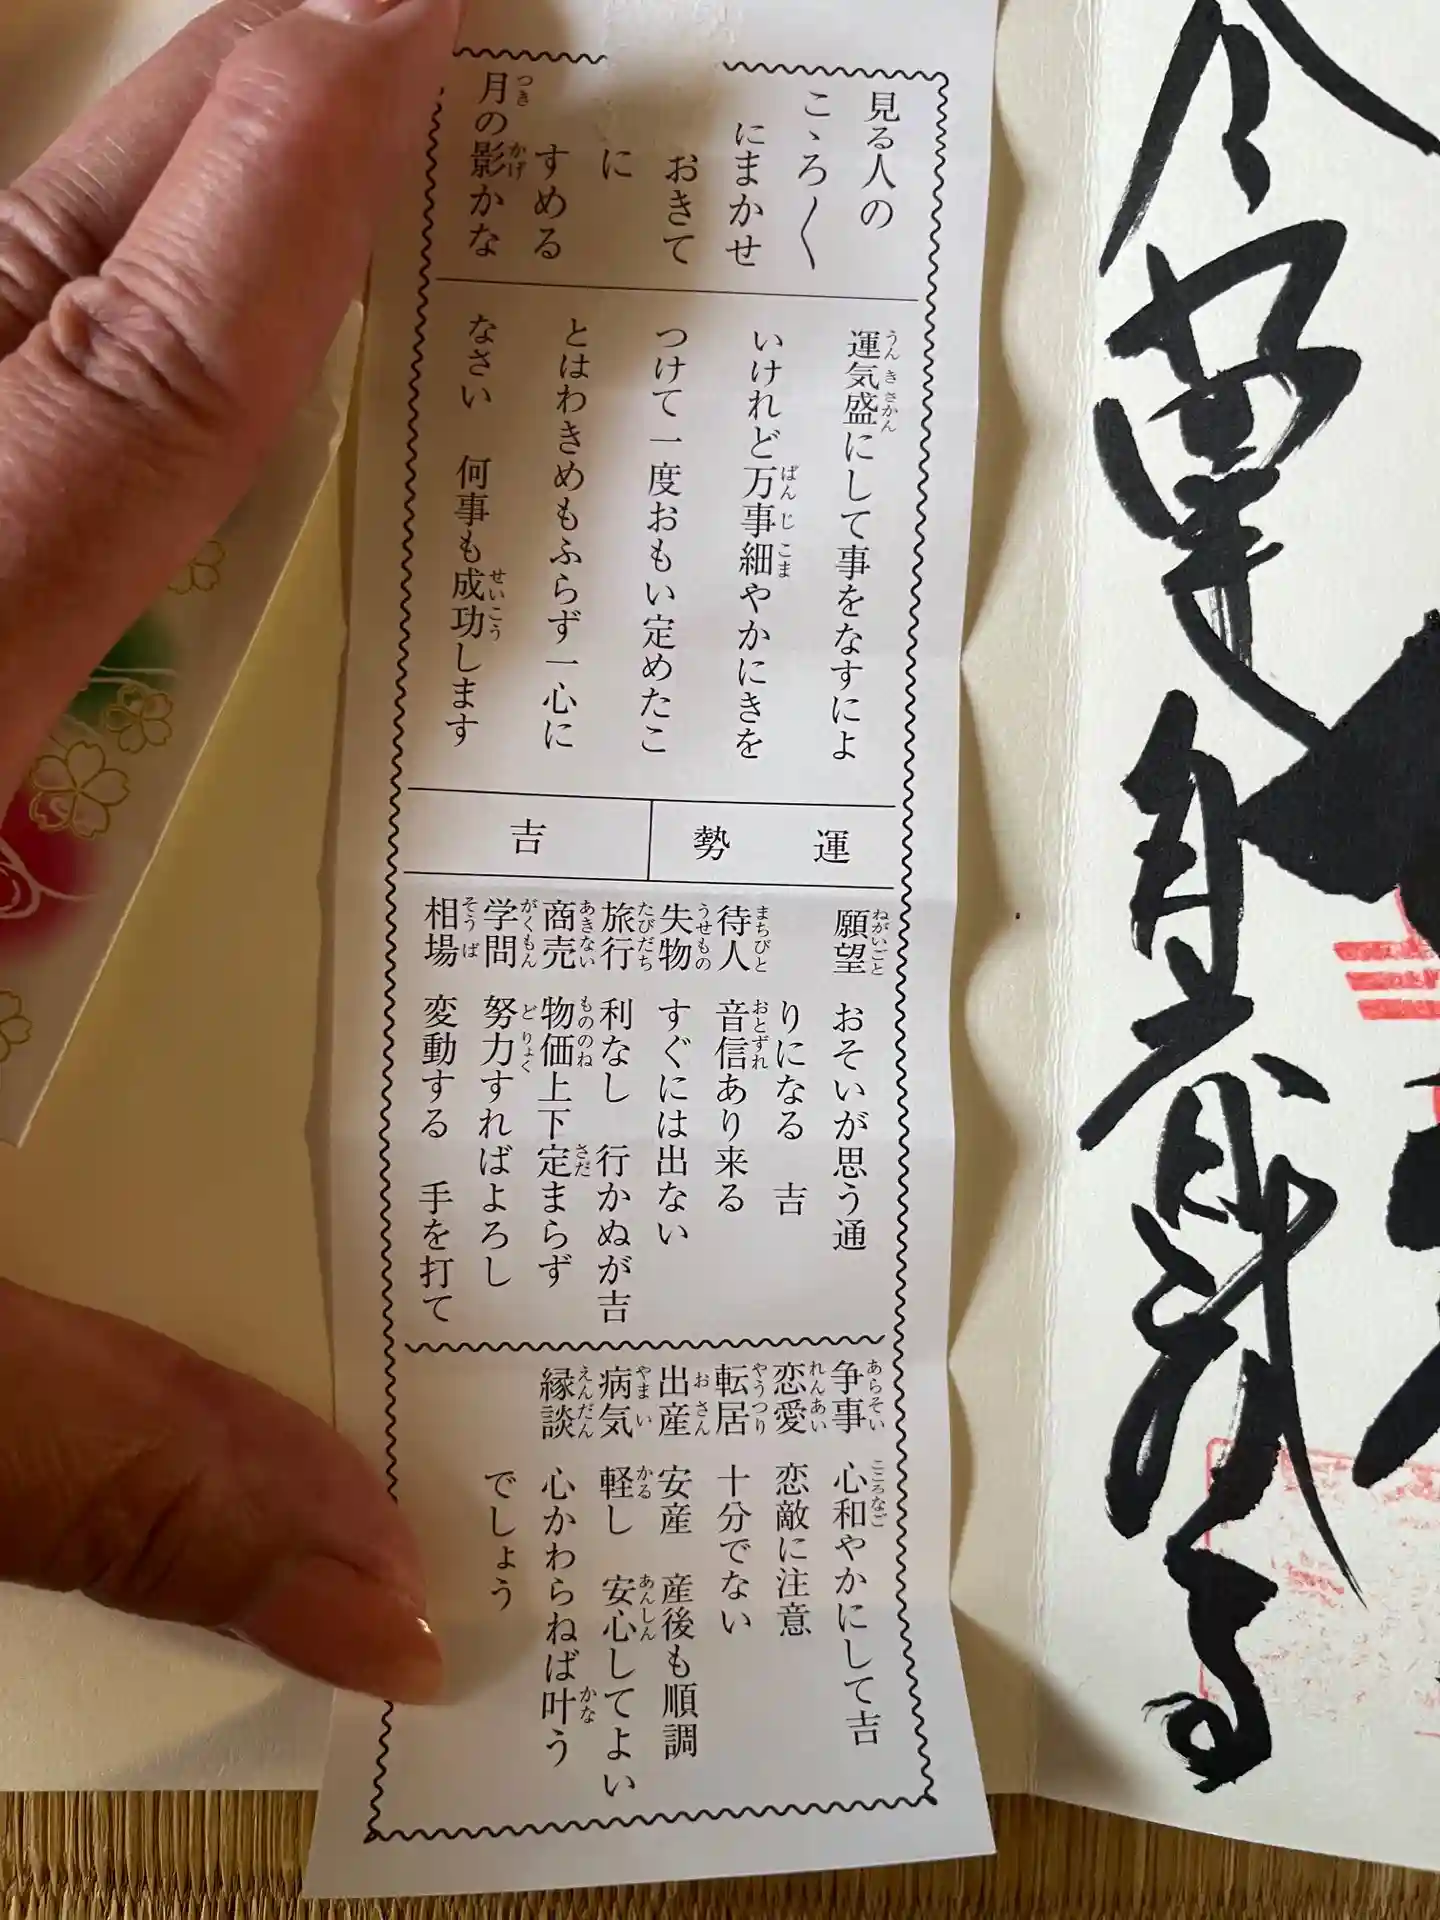 見る人の
こゝろ〱
にまかせ
おきて
に
すめる
月の影かな
運気盛にして事をなすによ
いけれど万事細やかにきを
つけて一度おもい定めたこ
とはわきめもふらず一心に
なさい　何事も成功します
運勢
吉
願望　おそいが思う通
りになる　吉
待人　音信あり来る
失物　すぐには出ない
旅行　利なし　行かぬが吉
商売　物価上下定まらず
学問　努力すればよろし
相場　変動する　手を打て
争事　心和やかにして吉
恋愛　恋敵に注意
転居　十分でない
出産　安産　産後も順調
病気　軽し　安心してよい
縁談　心かわらねば叶う
でしょう